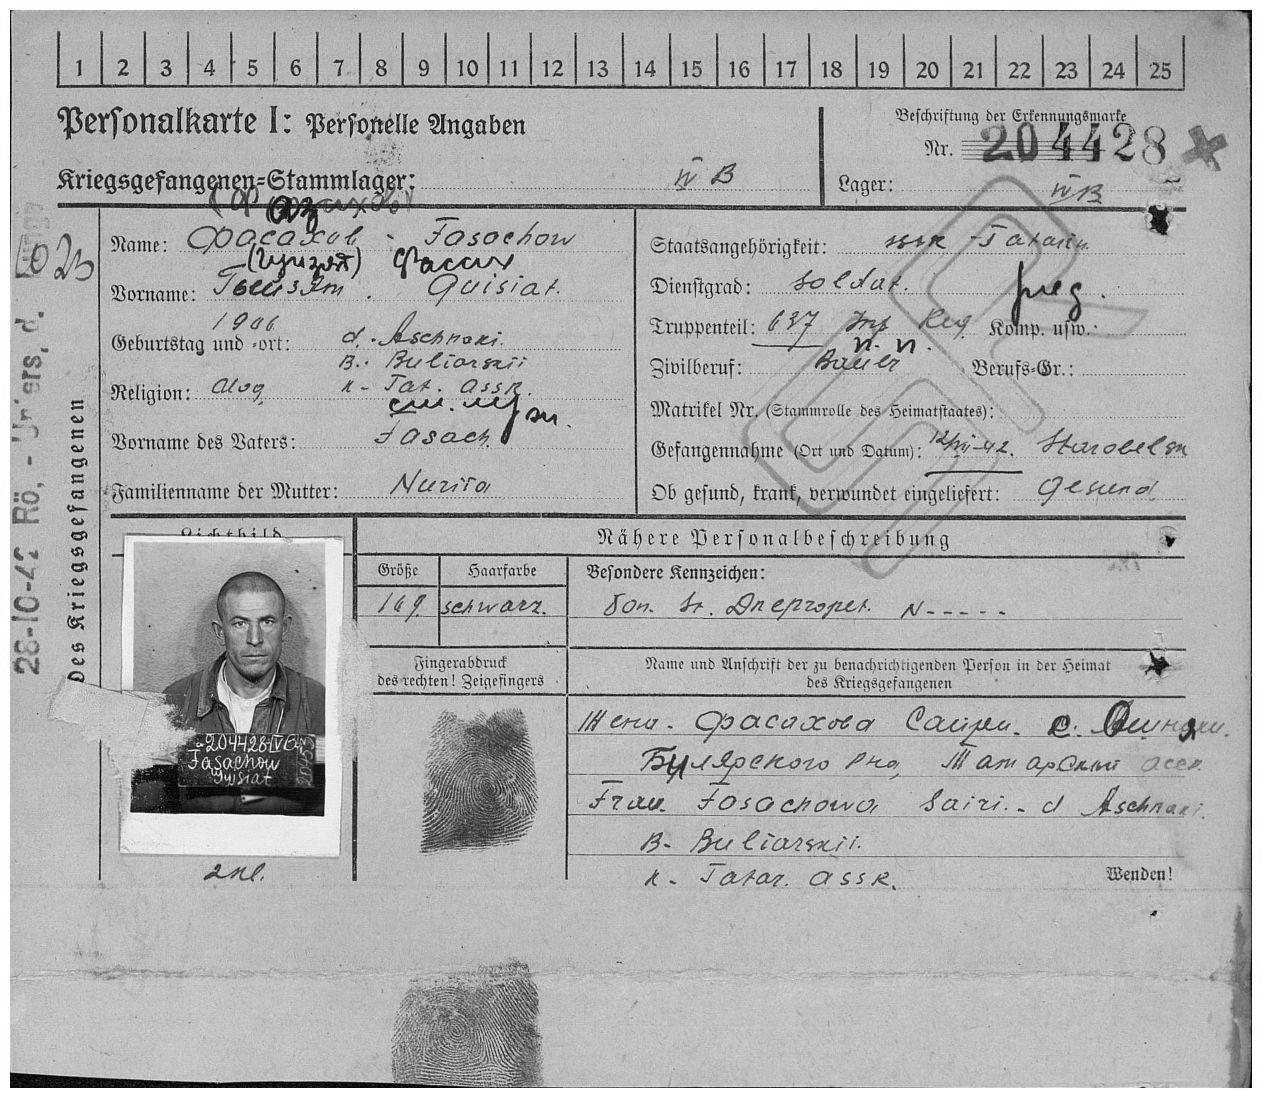 1 2 3 4 5 6 7 8 9 10 11 12 13 14 15 16 17 18 19 20 21 22 23 24 25
Personalkarte I: Personelle Angaben
Beschriftung der Erkennungsmarke
Nr. 204428
Kriegsgefangenen-Stammlager: IV B
Lager: IV B
Des Kriegsgefangenen
28-10-42 Rö.-
Name: Фасахов - Fasachow
Фасих
Vorname: Quisiat.
Geburtstag und -ort: 1906 d. Aschnaxi.
B. Buliarskii
Religion: k- Tat. ASSR.
Vorname des Vaters: Fasach.
Familienname der Mutter: Nurita
Staatsangehörigkeit:
Dienstgrad: soldat.
Truppenteil: 637 Inf Reg Komp. usw.:
Zivilberuf: Bauer Berufs-Gr.:
Matrikel Nr. (Stammrolle des Heimatstaates):
Gefangennahme (Ort und Datum): Starobelsk
Ob gesund, krank, verwundet eingeliefert: Gesund
Lichtbild
Nähere Personalbeschreibung
Größe
Haarfarbe
Besondere Kennzeichen:
169. schwarz.
Dnepropet. N-----
Fingerabdruck
des rechten! Zeigefingers
Name und Anschrift der zu benachrichtigenden Person in der Heimat
des Kriegsgefangenen
Жена - Фасахова Саири. с.
Булярского Рна, Татарский АССР.
Frau. Fasachowa Sairi.- d Aschnaxi.
B- Buliarskii.
k- Tatar. ASSR.
Wenden!
204428 IV B
Fasachow
Quisiat